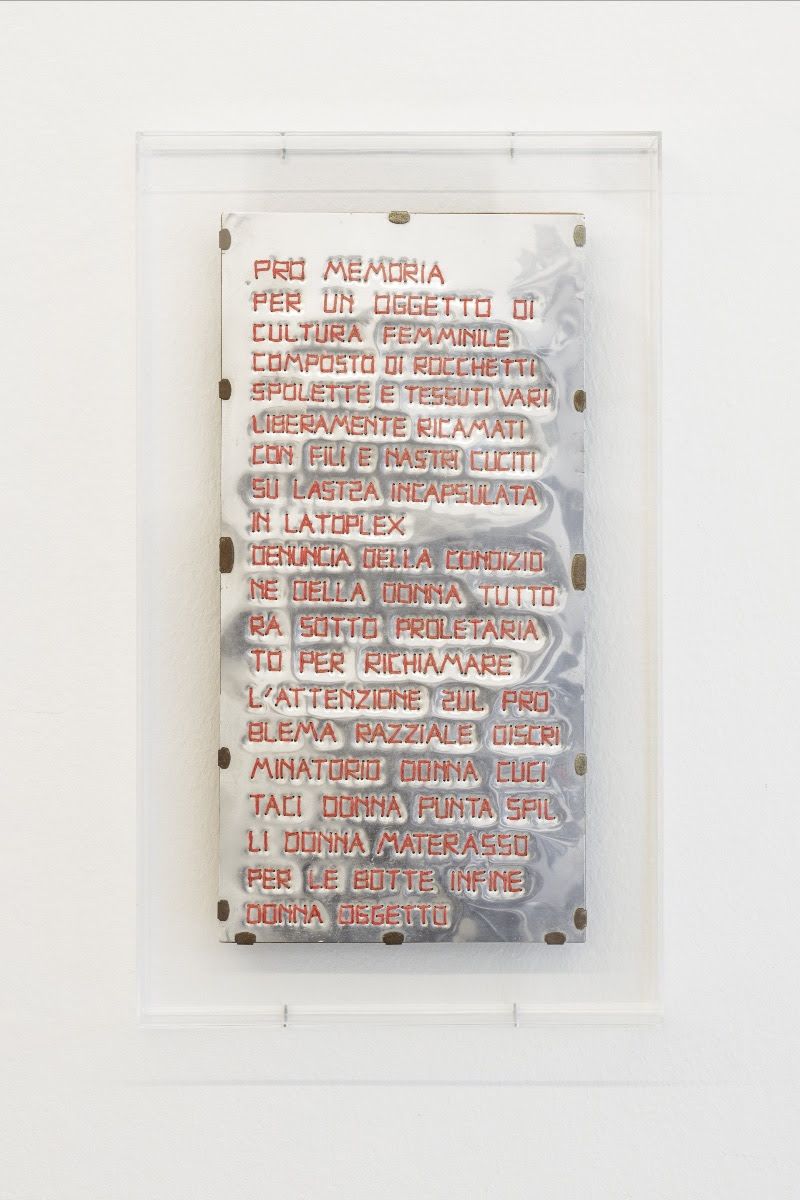 PRO MEMORIA
PER UN OGGETTO DI
CULTURA FEMMINILE
COMPOSTO DI ROCCHETTI
SPOLETTE E TESSUTI VARI
LIBERAMENTE RICAMATI
CON FILI E NASTRI CUCITI
SU LASTRA INCAPSULATA
IN LATOPLEX
DENUNCIA DELLA CONDIZIO
NE DELLA DONNA TUTTO
RA SOTTO PROLETARIA
TO PER RICHIAMARE
L'ATTENZIONE SUL PRO
BLEMA RAZZIALE DISCRI
MINATORIO DONNA CUCI
TACI DONNA PUNTA SPIL
LI DONNA MATERASSO
PER LE BOTTE INFINE
DONNA OGGETTO